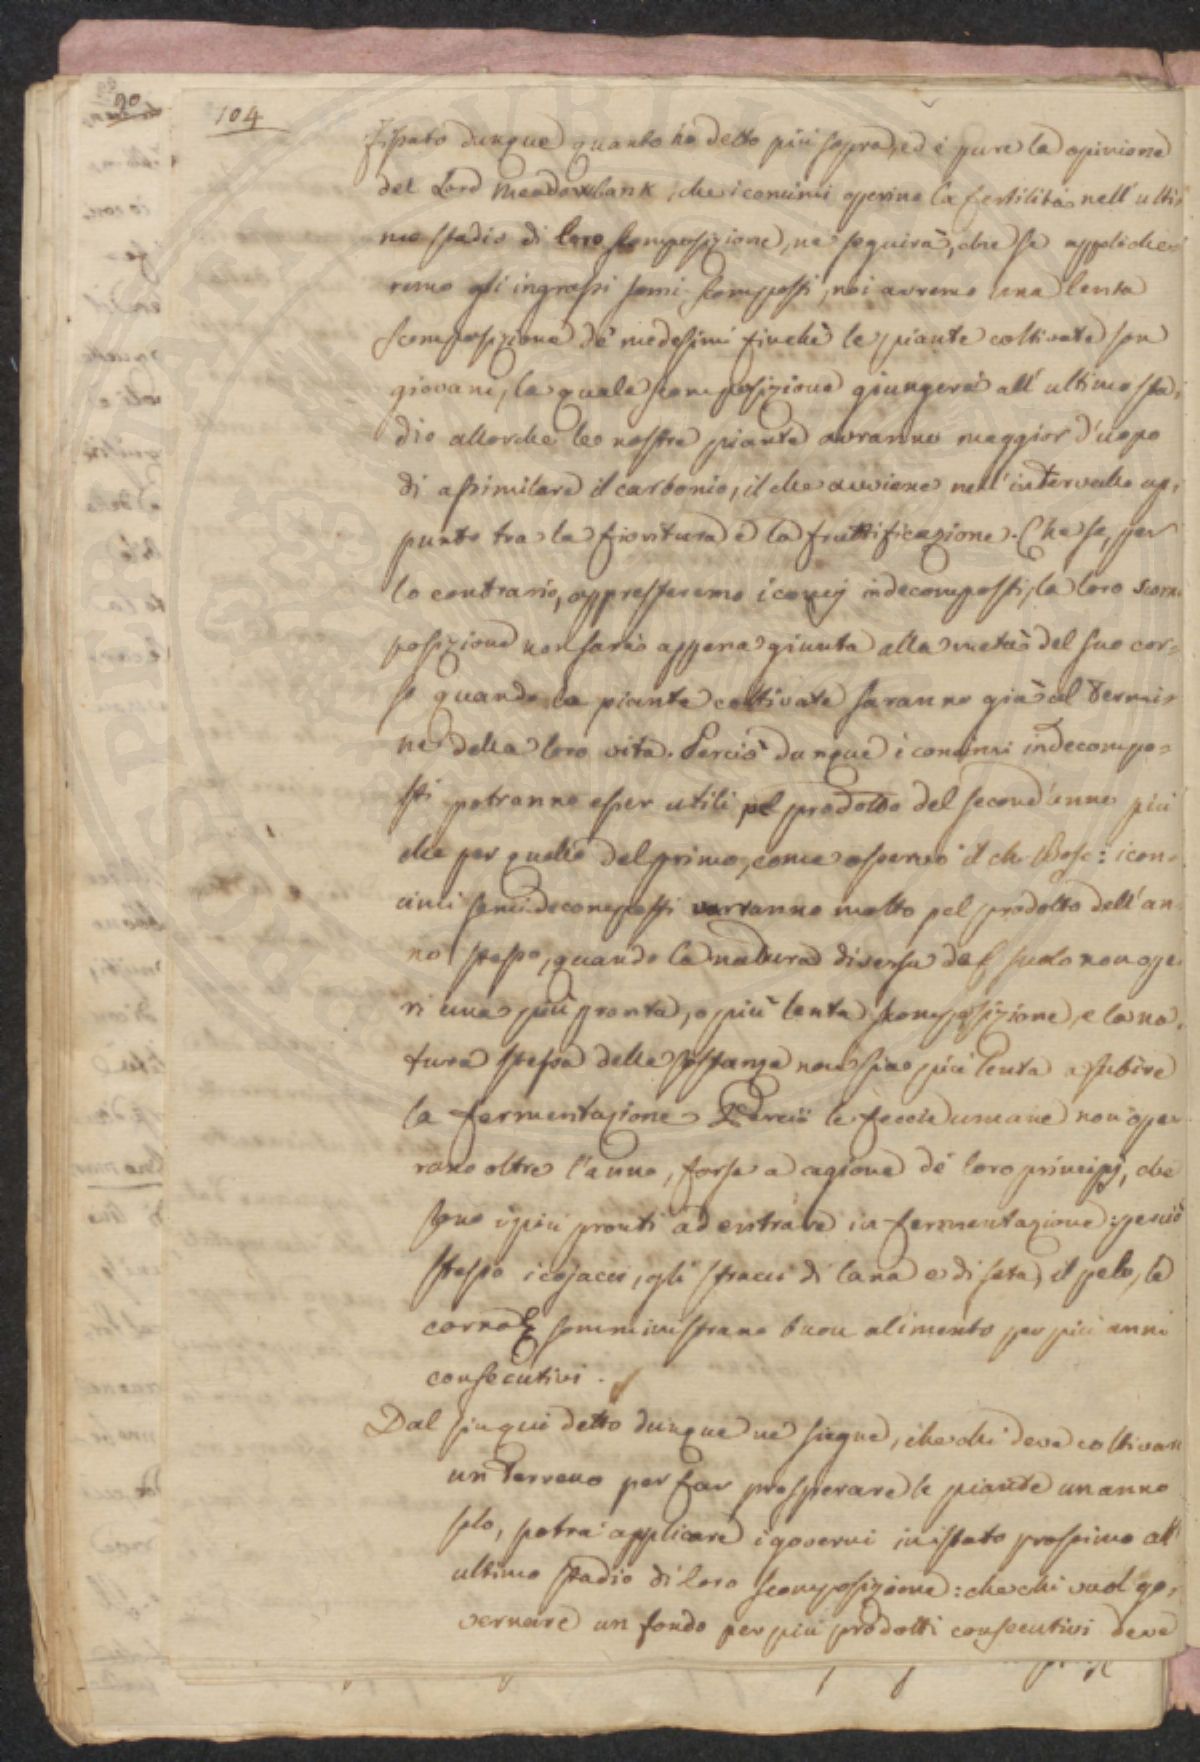 90
104
Fissato dunque quanto ho detto più sopra, ed è pure la opinione
del Lord Meadowbank, che i concimi operino la fertilità nell'ulti-
mo stadio di loro scomposizione, ne seguirà, che se appliche-
remo gli ingrassi semi-scomposti, noi avremo una lenta
scomposizione de' medesimi finchè le piante coltivate son
giovani, la quale scomposizione giungerà all'ultimo sta-
dio allorche le nostre piante avranno maggior d'uopo
di assimilare il carbonio, il che avviene nell'intervallo ap-
punto tra la fioritura e la fruttificazione. Che se, per
lo contrario, appresteremo i concj indecomposti, la loro scom-
posizione non sarà appena giunta alla metà del suo cor-
so quando le piante coltivate saranno già al termi-
ne della loro vita. Perciò dunque i concimi indecompo-
sti potranno esser utili pel prodotto del second'anno più
che per quello del primo, come osservò il ch. Bosc: i con-
cimi semidecomposti varranno molto pel prodotto dell'an-
no stesso, quando la natura diversa del suolo non ope-
ri una più pronta, o più lenta scomposizione, e la na-
tura stessa delle sostanze non sia più lenta a subire
la fermentazione. Perciò le feccie umane non ope-
rano oltre l'anno, forse a cagione de' loro principj, che
sono i più pronti ad entrare in fermentazione: perciò
stesso i cojacci, gli stracci di lana e di seta, il pelo, le
corna somministrano buon alimento per più anni
consecutivi.
Dal sin qui detto dunque ne siegue, che chi deve coltivare
un terreno per far prosperare le piante un anno
solo, potrà applicare i governi in stato prossimo all'
ultimo stadio di loro scomposizione: che chi vuol go-
vernare un fondo per più prodotti consecutivi deve